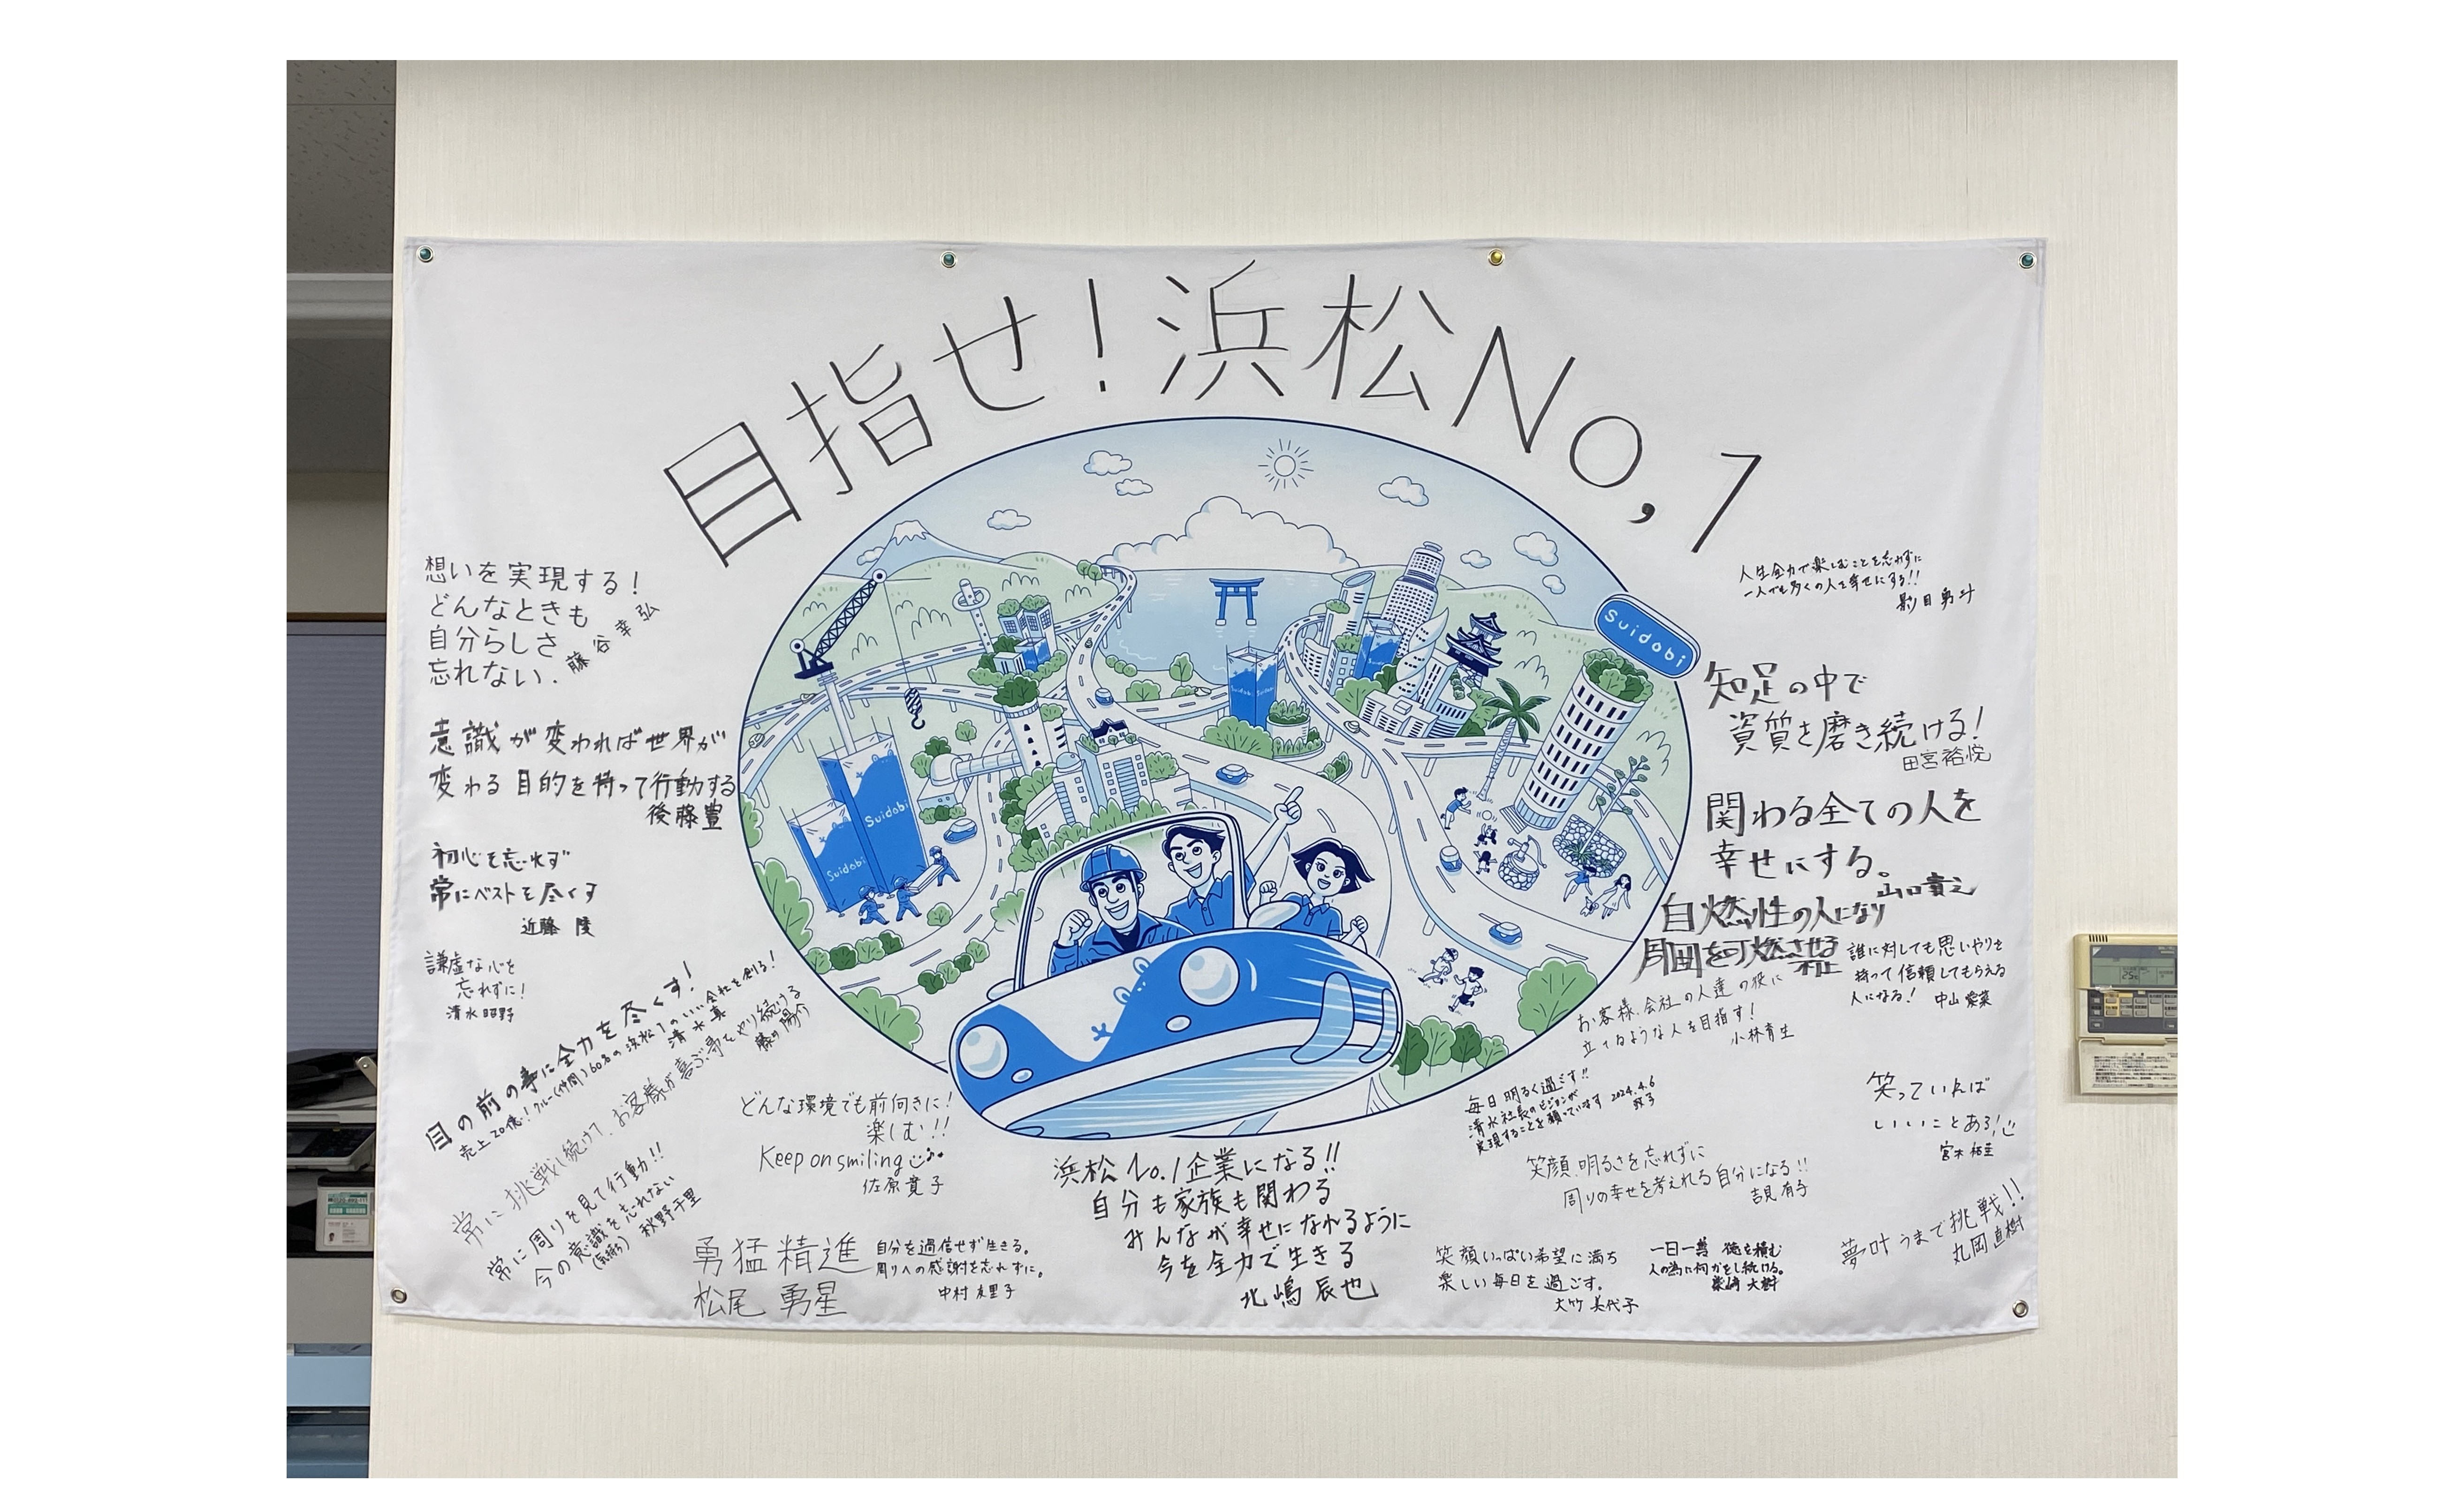 目指せ!浜松No,1
想いを実現する!
どんなときも
自分らしさ
忘れない.
藤谷幸弘
意識が変われば世界が
変わる 目的を持って行動する
後藤豊
初心を忘れず
常にベストを尽くす
近藤 陵
謙虚な心を
忘れずに!
清水昭野
目の前の事に全力を尽くす!
売上20億! クルー(仲間)60名の浜松1のいい会社を創る!
清水真
常に挑戦し続けて、お客様が喜ぶ事をやり続ける
常に周りを見て行動!!
今の意識を忘れない
秋野千里
どんな環境でも前向きに!
楽しむ!!
Keep on smiling
佐原寛子
勇猛精進
松尾 勇星
自分を過信せず生きる。
周りへの感謝を忘れずに。
中村 里子
浜松No.1企業になる!!
自分も家族も関わる
みんなが幸せになれるように
今を全力で生きる
北嶋辰也
Suidobi
Suidobi
Suidobi
Suidobi
Suidobi
人生全力で楽しむことを忘れずに
一人でも多くの人を幸せにする!!
影目勇斗
知足の中で
資質を磨き続ける!
田宮裕悦
関わる全ての人を
幸せにする。
山口貴之
自燃性の人になり
周囲を可燃させる
誰に対しても思いやりを
持って信頼してもらえる
人になる! 中山愛菜
お客様、会社の人達の役に
立てるような人を目指す!
小林育生
毎日明るく過ごす!!
清水社長のビジョンが
実現することを願っています 2024.4.6
笑っていれば
いいことある!
宮木佑圭
笑顔、明るさを忘れずに
周りの幸せを考えれる自分になる!!
吉見有子
笑顔いっぱい希望に満ち
楽しい毎日を過ごす。
大竹美代子
一日一善 徳を積む
人の為に何かをし続ける。
柴崎大樹
夢叶うまで挑戦!!
丸岡直樹